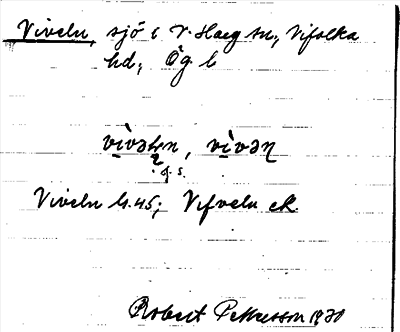 Viveln, sjö i V. Harg sn, Vifolka
hd, Ög. l.
vìvəln, vìvəɳ
Viveln G. 45; Vifveln ek.
Robert Pettersson 1930